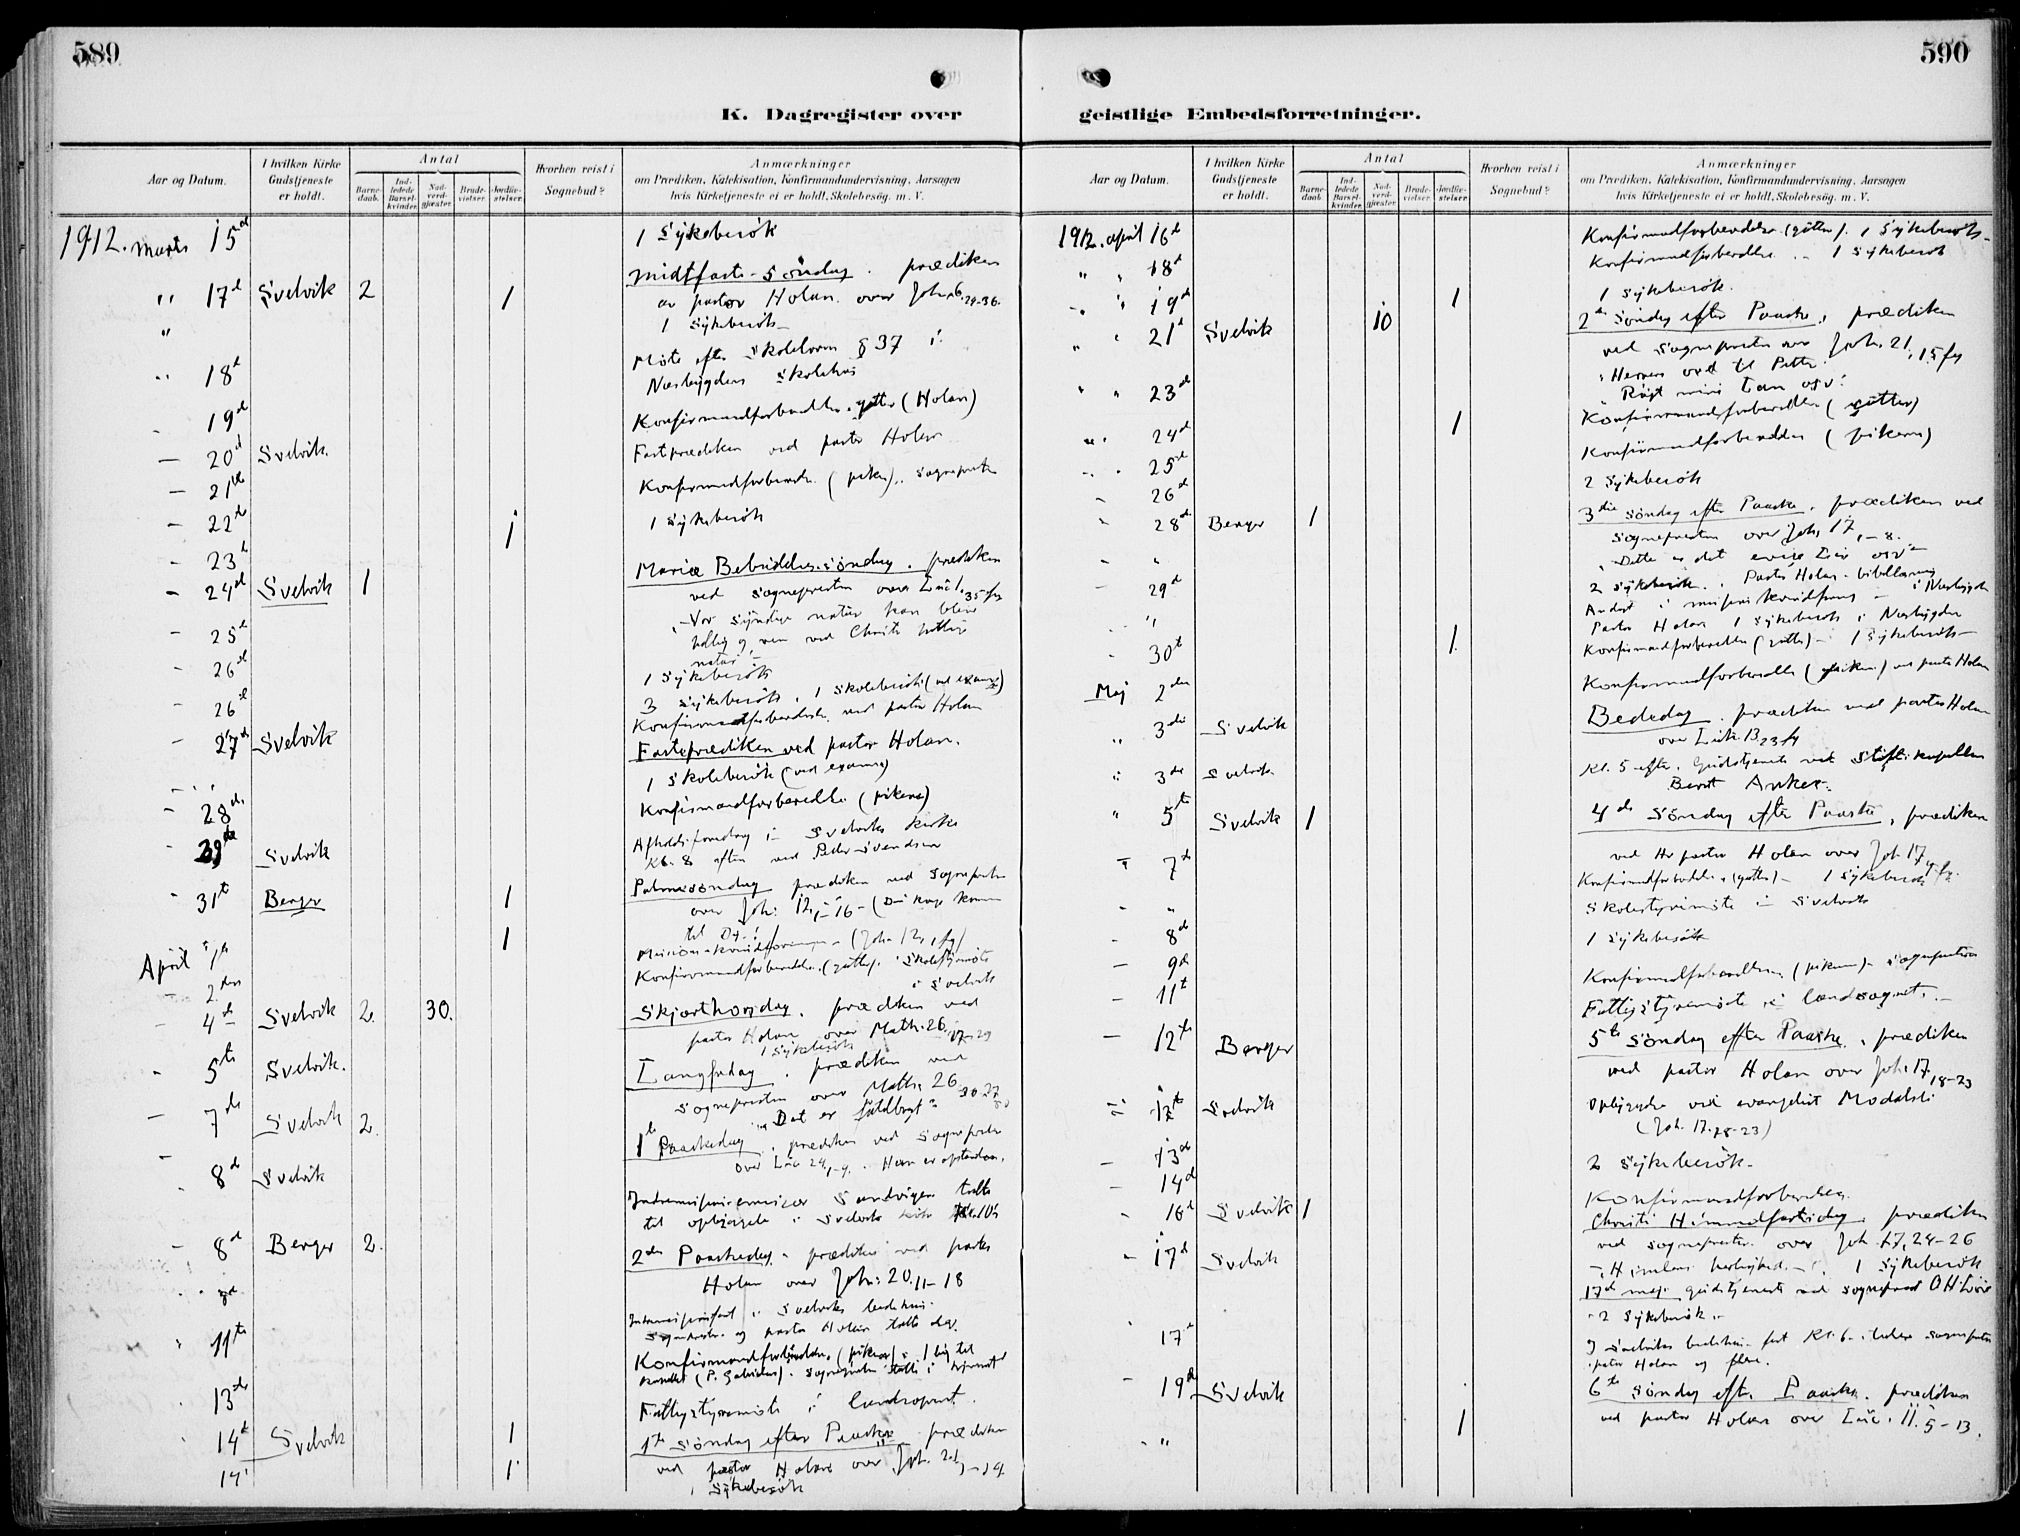 589
K. Dagregister over
Aar og Datum.
I hvilken Kirke Gudstjeneste er holdt.
Antal
Barne-daab.
Ind-ledede Barsel-kvinder.
Nad-verd-gjæster.
Brude-vielser.
Jordfæ-stelser.
Hvorhen reist i Sognebud?
Anmærkninger
om Prædiken, Katekisation, Konfirmandundervisning, Aarsagen
hvis Kirketjeneste ei er holdt, Skolebesøg. m. V.
1912. Marts 15d 1 Sykebesök
" 17d Svelvik 2 1 Midtfaste-Söndag. prædiken
av pastor Holan over Joh. 6.24-36.
" 1 Sykebesök
" 18d Möte efter Skoleloven § 37 i
Nesbygdens Skolehus
19d Konfirmandforberedelse gutter (Holan)
20d Svelvik. Fasteprædiken ved pastor Holan
21de Konfirmandforbered. (piker), Sognepresten
22de 1 1 Sykebesök
23d
24d Svelvik 1 Mariæ Bebudelses söndag. prædiken
ved sognepresten over Luc 1.35 fg
"Vor syndige natur kan blive
hellig og ren ved Christi hellige
natur"
25d 1 Sykebesök
26d 3 Sykebesök, 1 skolebesök (ved examen)
26d Konfirmandforberedelse ved pastor Holan
27d Svelvik Fasteprædiken ved pastor Holan.
" 1 Skolebesök (ved examen)
28de Konfirmandforberedelse (pikene)
Svelvik Afholdsforedrag i Svelviks kirke
Kl. 8 aften ved Peder Svendsen
31te Berger 1 Palmesöndag prædiken ved Sognepresten
over Joh. 12, 1-16 -
April 1 (Joh. 12, 1 fg)
2den Konfirmandforberedelse (gutter). Skolestyremöte
i Svelvik
4d Svelvik 2. 30. Skjærthorsdag. prædiken ved
pastor Holan over Math. 26, 17-29
1 Sykebesök
5te Svelvik. Langfredag. prædiken ved
Sognepresten over Math. 26
"Det er fuldbragt"
7de Svelvik 2. 1ste Paaskedag. prædiken ved Sognepresten
over Luc 24, 1-9. Han er opstanden.
8d Svelvik Sandvigen talte
til opbyggelse i Svelviks kirke
8d Berger 2. 2den Paaskedag. prædiken ved pastor
Holan over Joh: 20, 11-18
8d i Svelviks bedehus.
Sognepresten og pastor Holan talte der.
11te Konfirmandforberedelse (pikene). 1 lig til
13de Fattigstyremöte i landsognet.
14d Svelvik 1 1ste Söndag efter Paaske prædiken
14 1 ved pastor Holan over Joh. 21, 1-14.
1 Sykebesök
590
geistlige Embedsforretninger.
Aar og Datum.
I hvilken Kirke Gudstjeneste er holdt.
Antal
Barne-daab.
Ind-ledede Barsel-kvinder.
Nad-verd-gjæster.
Brude-vielser.
Jordfæ-stelser.
Hvorhen reist i Sognebud?
Anmærkninger
om Prædiken, Katekisation, Konfirmandundervisning, Aarsagen
hvis Kirketjeneste ei er holdt, Skolebesøg. m. V.
1912. April 16d Konfirmandforberedelse (gutter). 1 Sykebesök
" " 18d Konfirmandforberedelse. 1 Sykebesök
" " 19d 1 1 Sykebesök.
" " 21d Svelvik 10 2den Söndag efter Paaske, prædiken
ved Sognepresten over Joh. 21, 15 fg
Herrens ord til Peter
" " 23d Konfirmandforberedelse (gutter)
" " 24d 1 Konfirmandforberedelse (pikerne)
" 25d 2 Sykebesök
26d
28d Berger 1 3die Söndag efter Paaske. prædiken ved
Sognepresten over Joh. 17, 1-8.
"Dette er det evige Liv osv"
" 2 Sykebesök. Pastor Holan bibellæsning
i Nesbygden
29d Pastor Holan 1 Sykebesök i Nesbygden
30te 1. Konfirmandforberedelse (gutter) - 1 Sykebesök
Maj 2den Konfirmandforberedelse (piker) ved pastor Holan
" 3die Svelvik Bededag. prædiken ved pastor Holan
over Luk. 13, 23 fg
" 3die Svelvik Kl. 5 efter. Gudstjeneste ved Stiftskapellan
Bernt Anker.
" 5te Svelvik 1 4de Söndag efter Paaske, prædiken
ved Hr pastor Holan over Joh. 17
7de Konfirmandforberedelse (gutter) - 1 Sykebesök
" Skolestyremöte i Svelvik
8de 1 Sykebesök
9d Konfirmandforberedelse (pikerne) - Sognepresten
11te Fattigstyremöte i landsognet. -
12te Berger 5te Söndag efter Paaske, prædiken
ved pastor Holan over Joh. 17, 18-23
12te Svelvik Opbyggelse ved evangelist Modalsli
(Joh. 17.18-23)
13d 2 Sykebesök.
14d Konfirmandforberedelse.
16d Svelvik 1 Christi Himmelfartsdag. prædiken
ved sognepresten over Joh 17, 24-26
"Himlens herlighed" 1 Sykebesök
17d Svelvik 17d maj. gudstjeneste ved sogneprest
2 Sykebesök.
17d I Svelviks bedehus fest Kl. 6. taler sognepresten
pastor Holan og flere.
19d Svelvik 6te Söndag efter Paaske. prædiken
" 1 ved pastor Holan over Luc. 11.5-13.